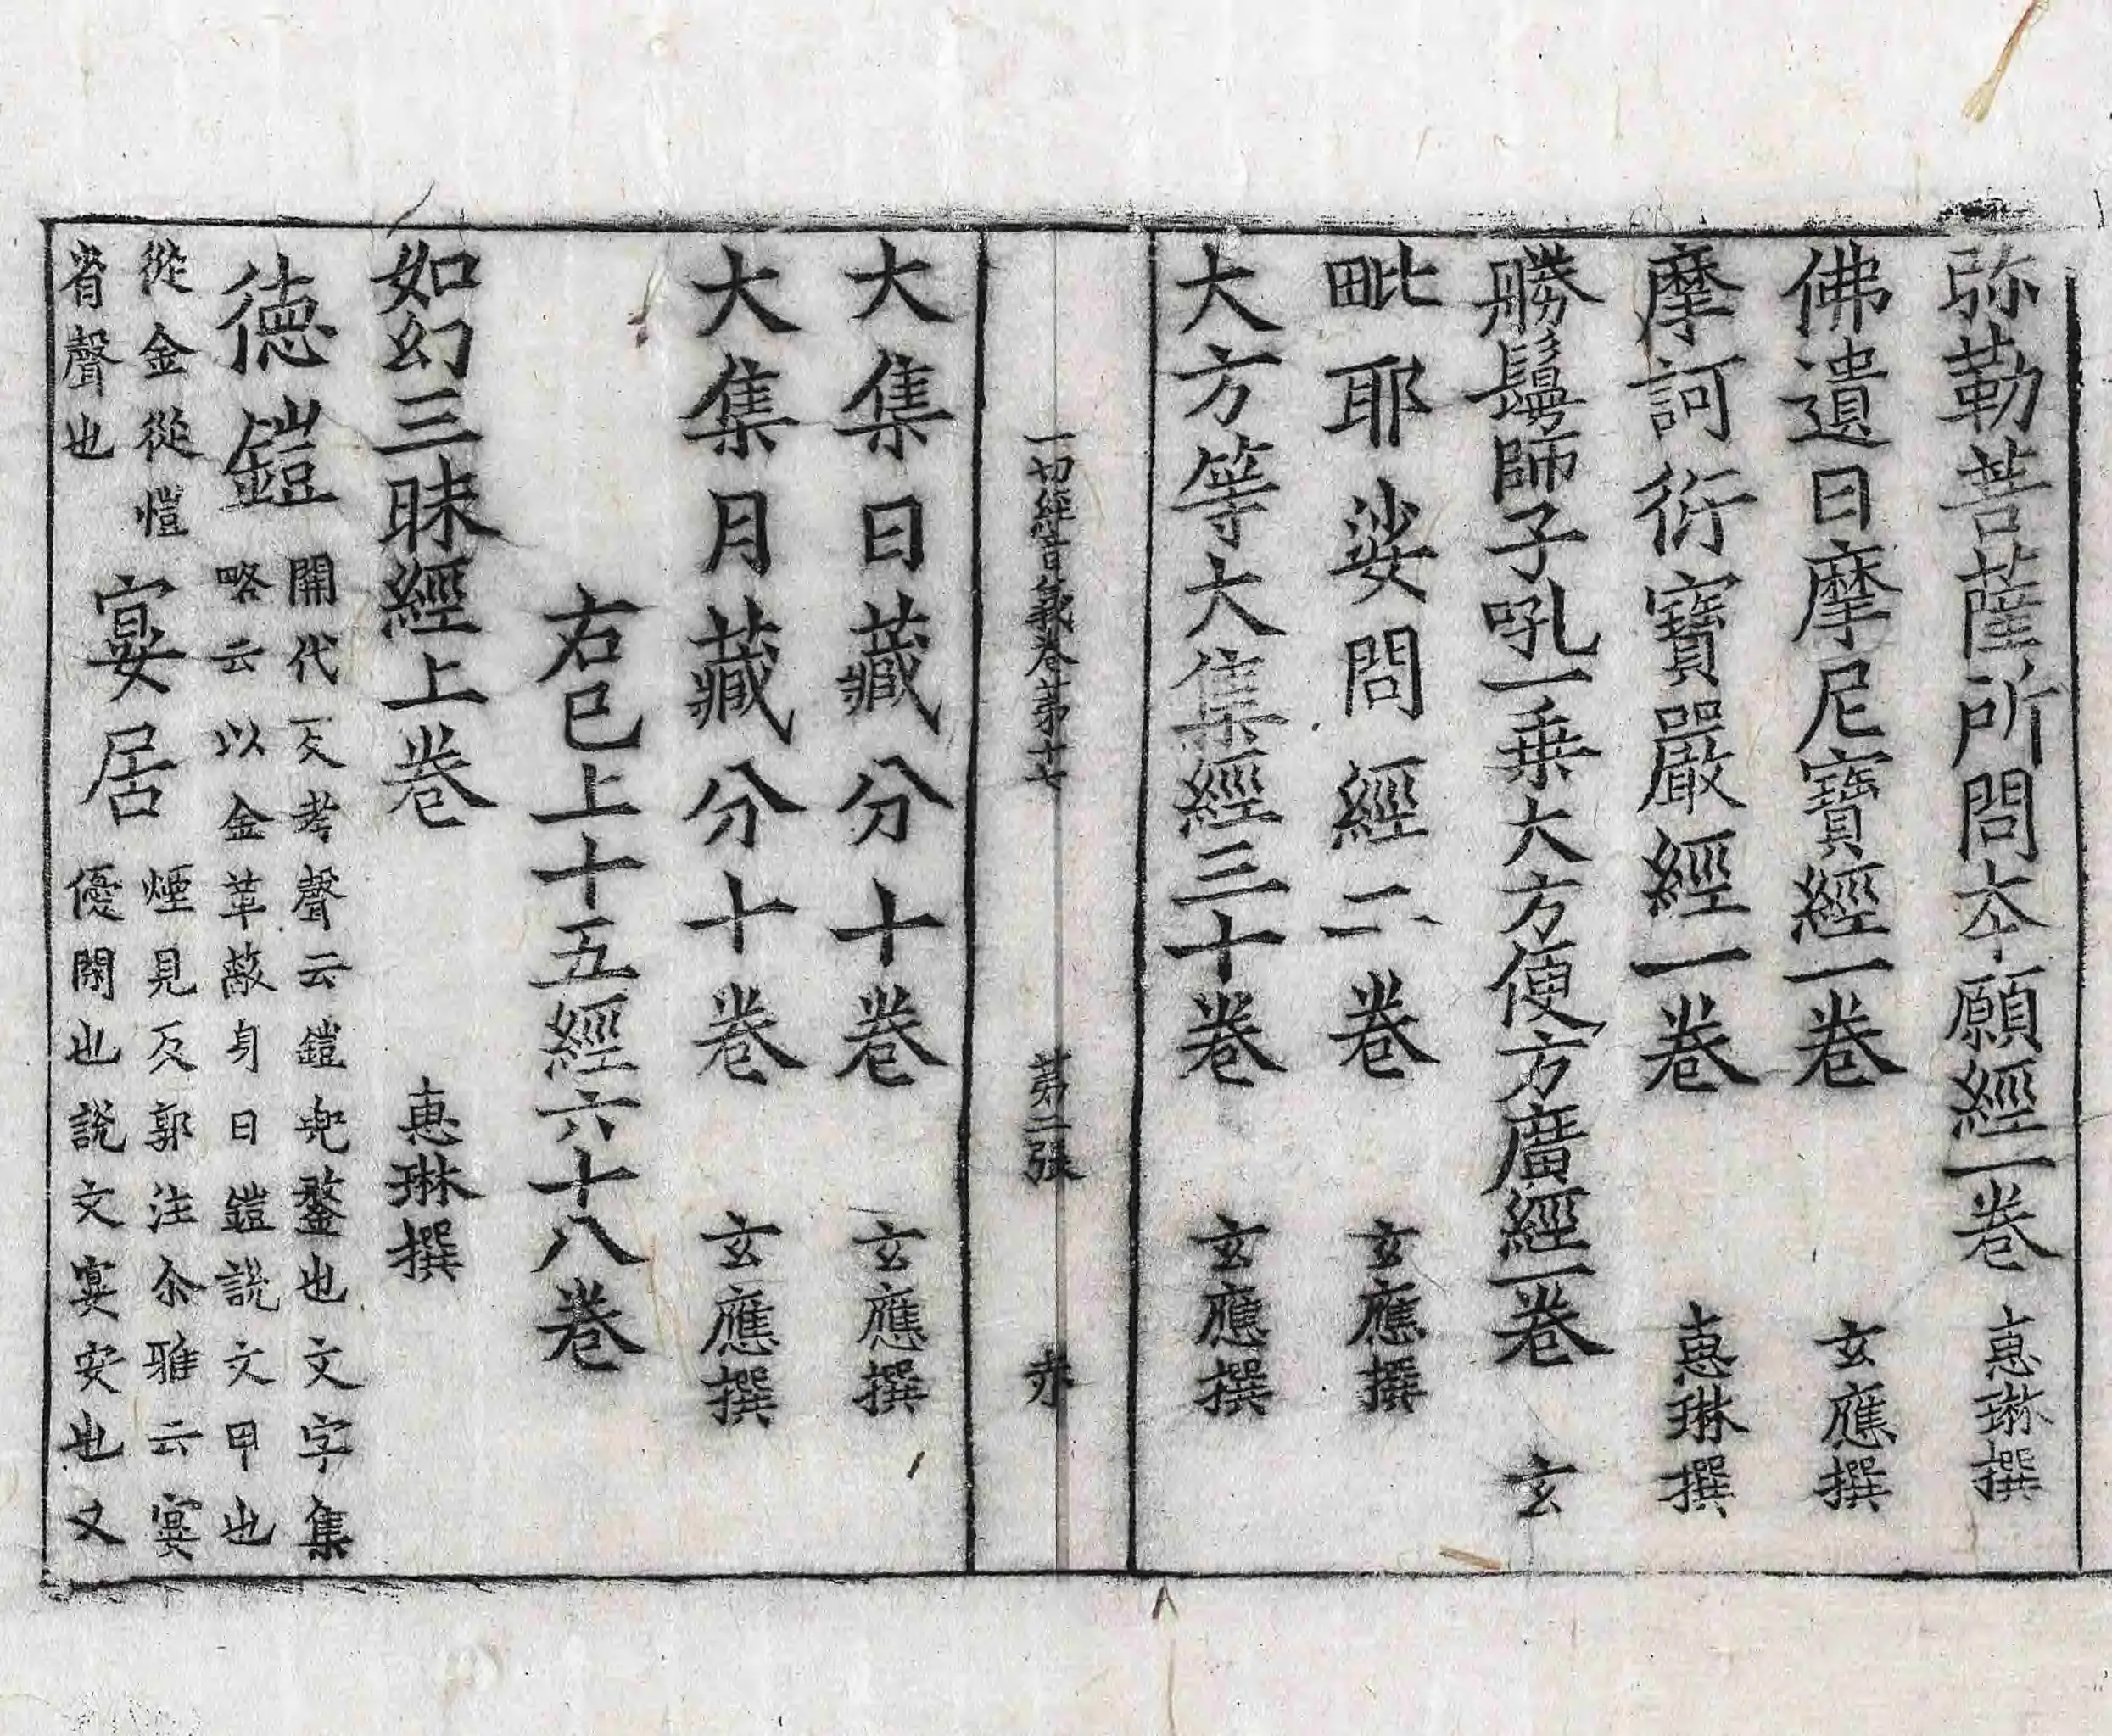 弥勒菩薩所問夲願經一卷 惠琳撰
佛遺日摩尼寶經一卷 玄應撰
摩訶衍寶嚴經一卷 惠琳撰
勝鬘師子吼一乗大方便方廣經一卷 玄
毗耶娑問經二卷 玄應撰
大方等大集經三十卷 玄應撰
一切經音義卷第十七 第二張 赤
大集日藏分十卷 玄應撰
大集月藏分十卷 玄應撰
右已上十五經六十八卷
如幻三昧經上卷 惠琳撰
德鎧
開代反考聲云鎧兜鍪也文字集
略云以金革蔽身曰鎧說文甲也
從金從愷
省聲也
宴居
煙見反郭注尒雅云宴
優閑也說文宴安也又